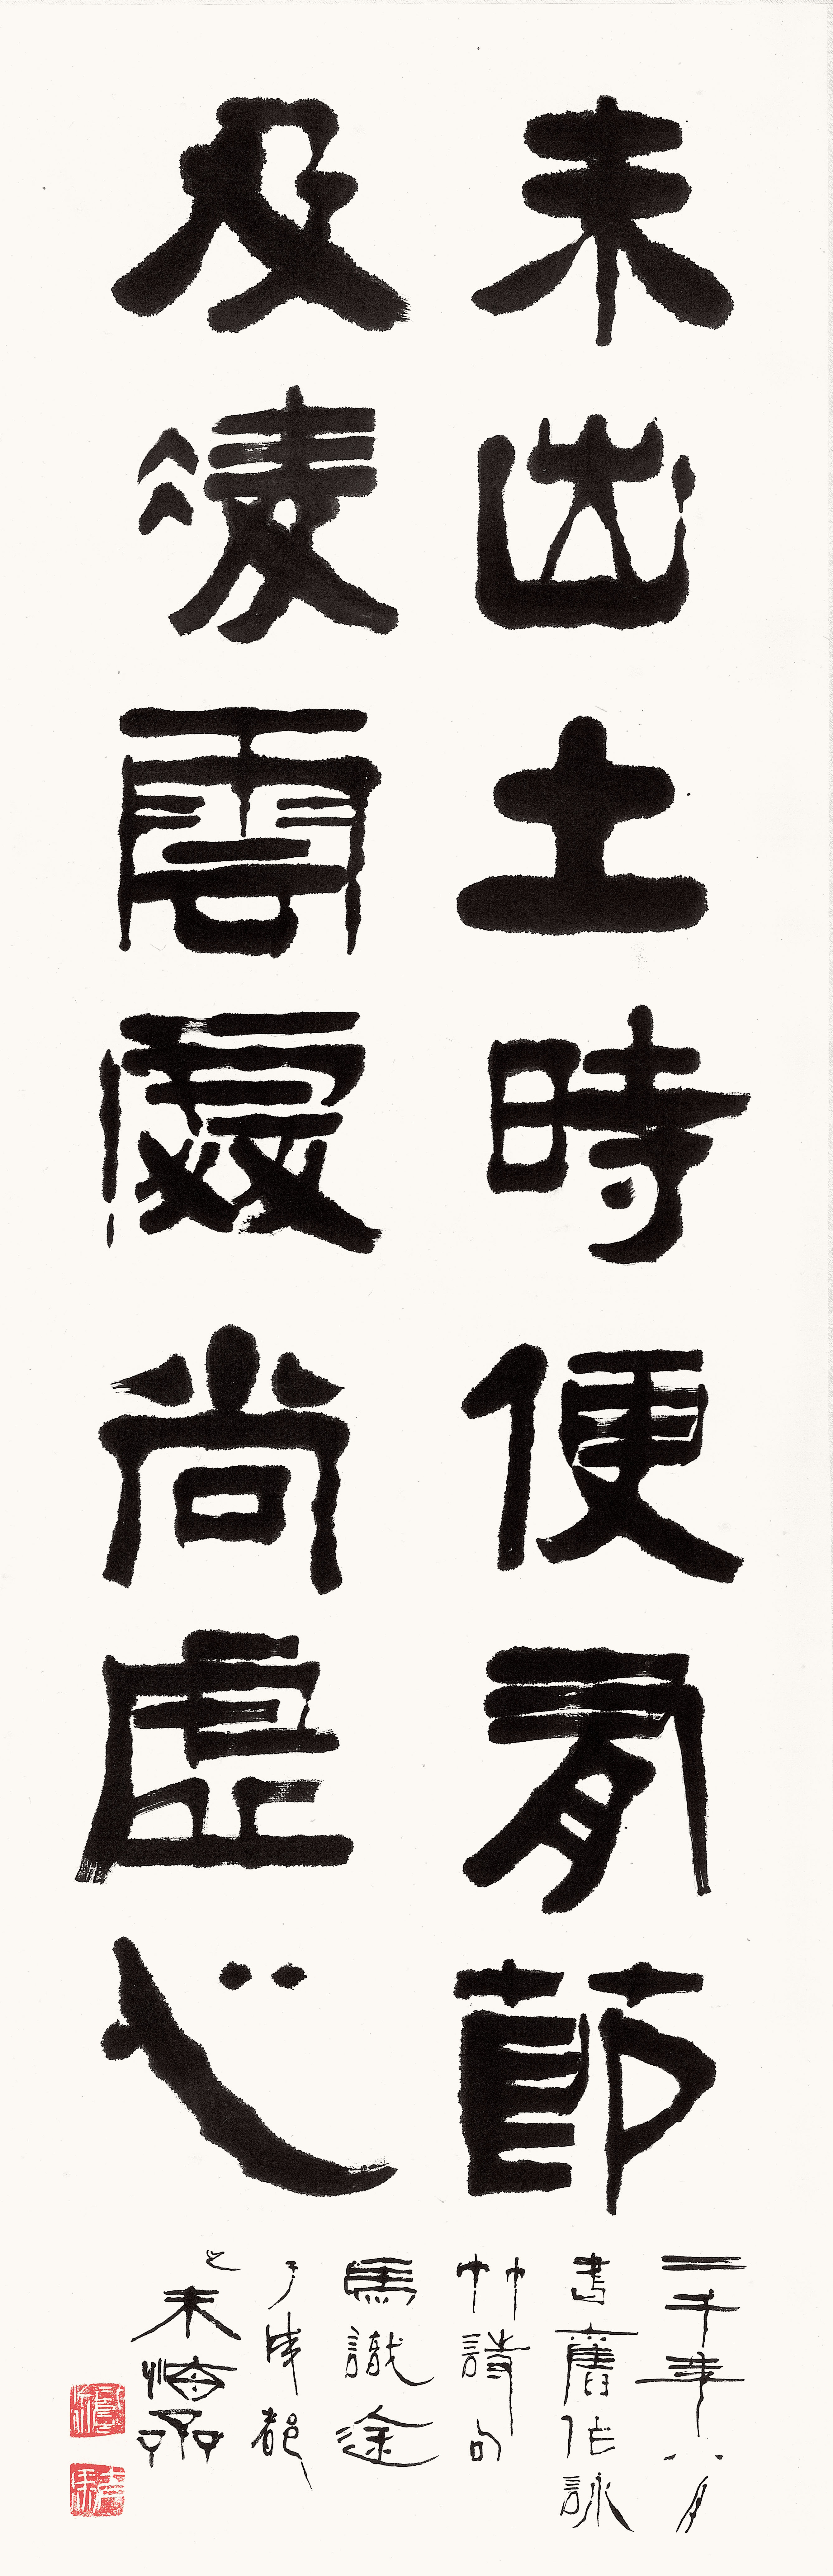 未出土時便有節
及凌雲處尚虛心
二千年八月
書舊作詠
竹詩句
馬識途
于成都
之未悔齋